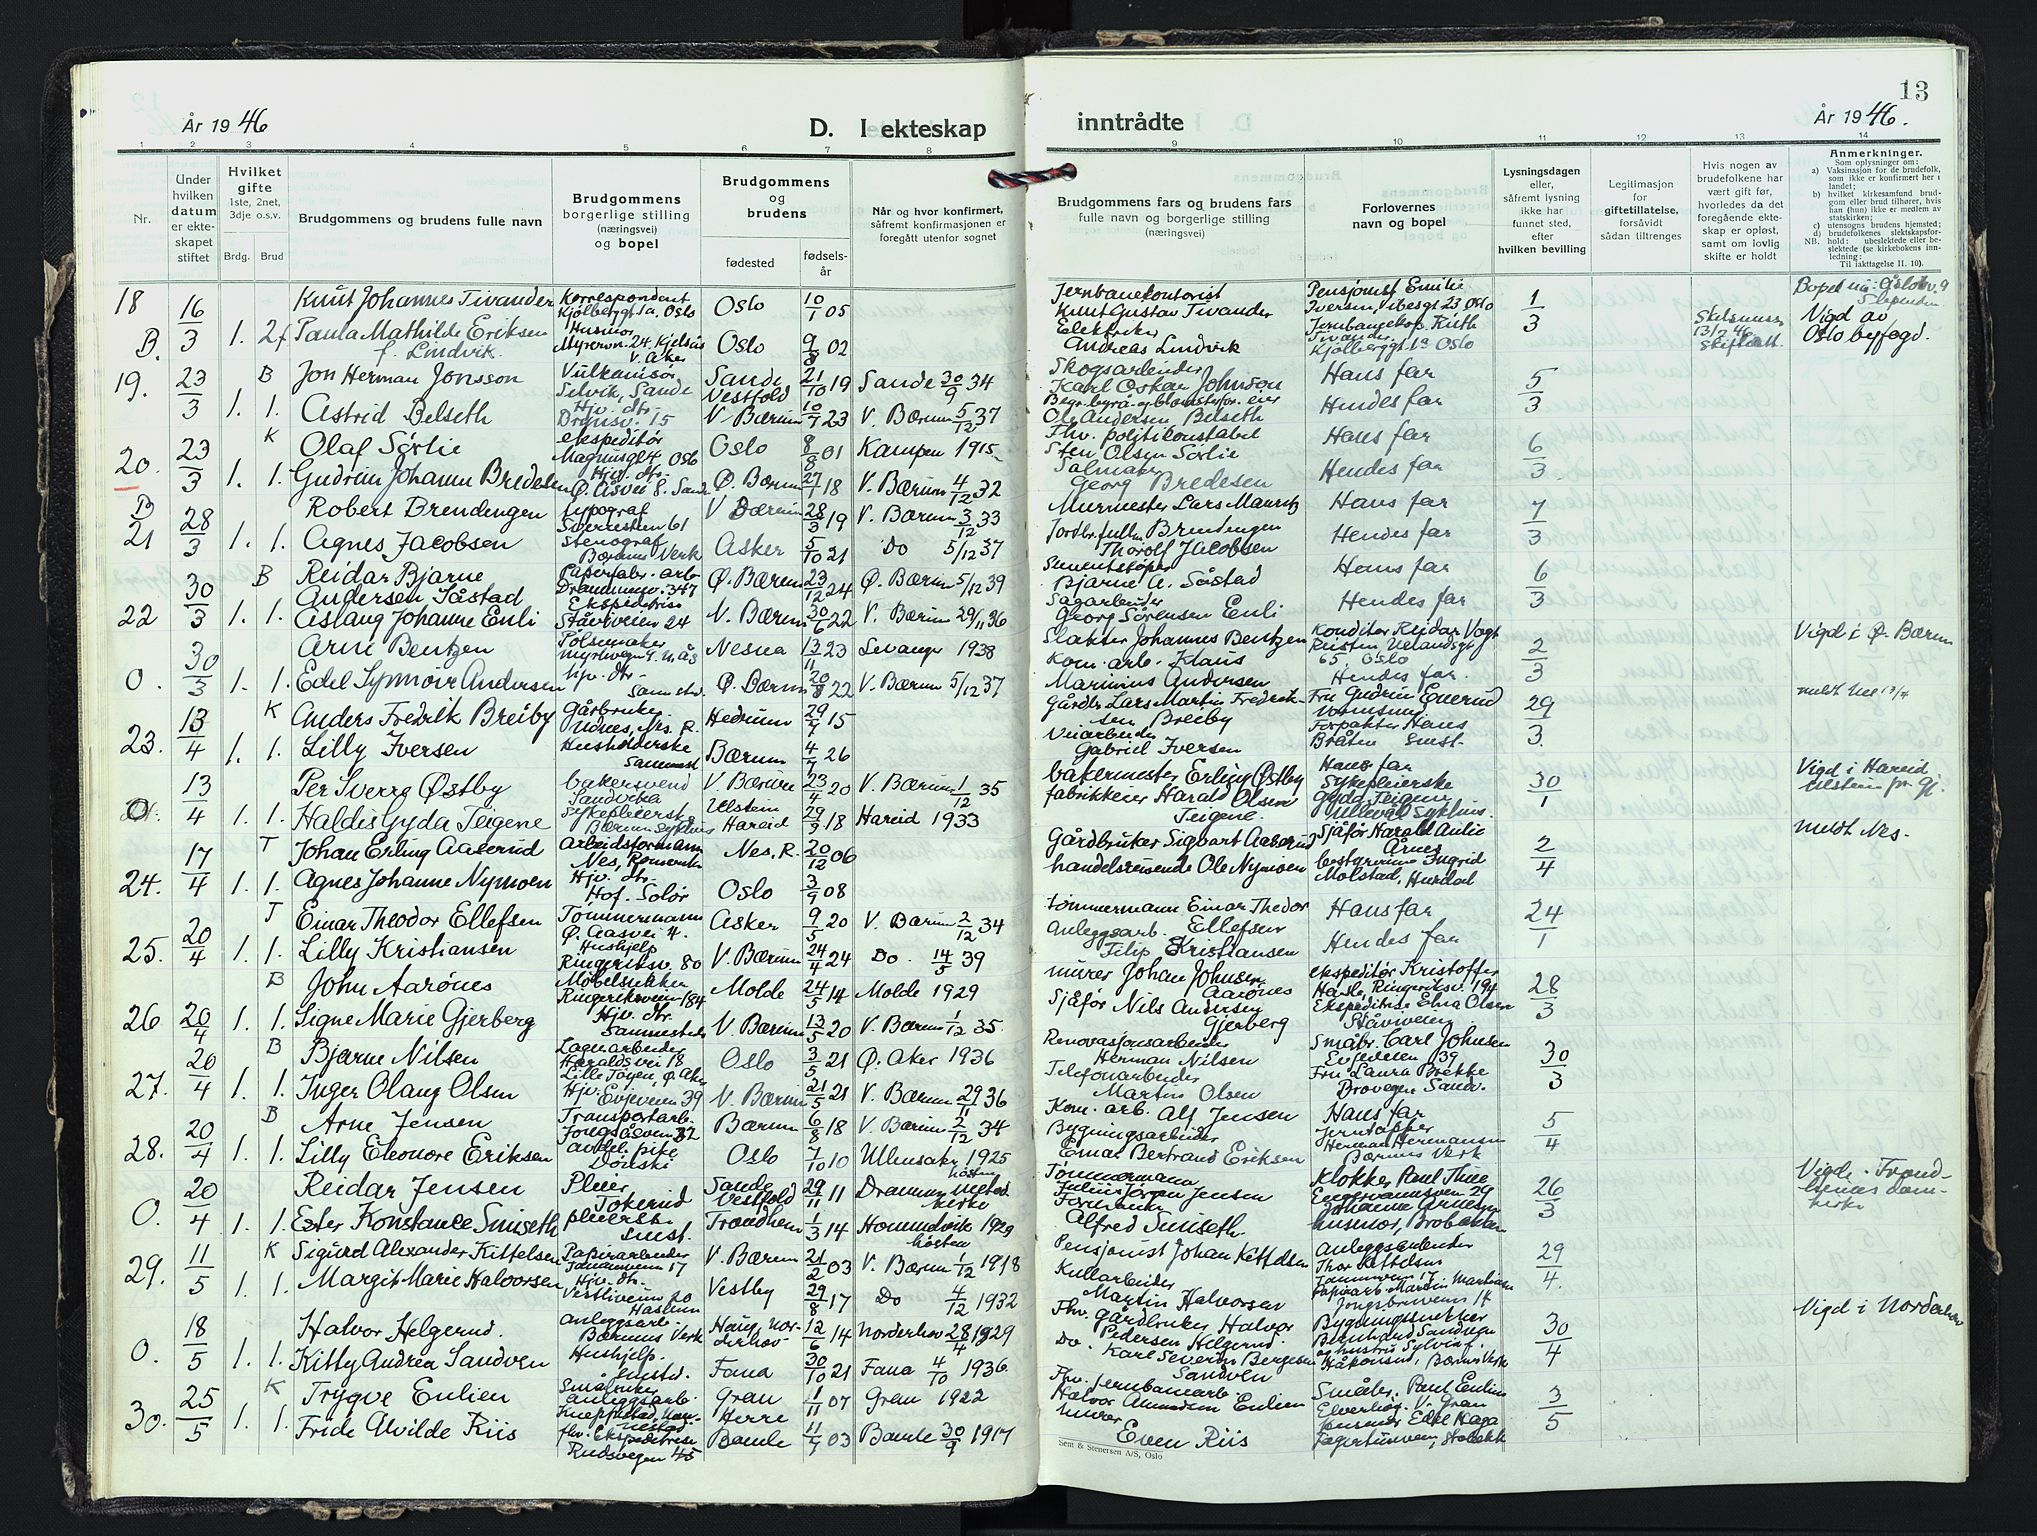 13
År 1946
D. I ekteskap
inntrådte
År 1946.
1 2 3 4 5 6 7 8 9 10 11 12 13 14
Nr.
Under hvilken datum er ekteskapet stiftet
Hvilket gifte 1ste, 2net, 3dje o.s.v.
Brdg. Brud
Brudgommens og brudens fulle navn
Brudgommens borgerlige stilling (næringsvei) og bopel
Brudgommens og brudens
fødested
fødselsår
Når og hvor konfirmert, såfremt konfirmasjonen er foregått utenfor sognet
Brudgommens fars og brudens fars fulle navn og borgerlige stilling (næringsvei)
Forlovernes navn og bopel
Lysningsdagen eller, såfremt lysning ikke har funnet sted, efter hvilken bevilling
Legitimasjon for giftetillatelse, forsåvidt sådan tiltrenges
Hvis nogen av brudefolkene har vært gift før, hvorledes da det foregående ekteskap er opløst, samt om lovlig skifte er holdt
Anmerkninger.
Som oplysninger om:
a) Vaksinasjon for de brudefolk, som ikke er konfirmert her i landet;
b) hvilket kirkesamfund brudgom eller brud tilhører, hvis han (hun) ikke er medlem av statskirken;
c) utensogns brudens hjemsted;
d) brudefolkenes slektskapsforhold: ubeslektede eller beslektede (se kirkebokens innledning:
NB. Til iakttagelse II. 10).
18 16/3 Knut Johannes Tivander Korrespondent Kjølberggt 1a, Oslo Oslo 10/1 05 Jernbanekontorist Knut Gustav Tivander Pensjonist Emilie Iversen 23 Oslo 1/3
B. 1. 2f Paula Mathilde Eriksen f. Lindvik. Husmor Myrerv. 24, Kjelsås V. Aker Oslo 9/8 02 Elektriker Andreas Lindvik Ruth Tivander Kjølberggt 1a Oslo 13/2 46 Vigd av Oslo byfogd.
19. 23/3 B Jon Herman Jonsson Vulkanisør Selvik, Sande Sande Vestfold 21/10 19 Sande 30/9 34 Skogsarbeider Karl Oskar Johnson Hans far 5/3
1. 1. Astrid Belseth Hjv. dtr. 15 V. Bærum 10/7 23 V. Bærum 5/12 37 Ole Andersen Belseth Hendes far
20. 23/3 K Olaf Sørlie ekspeditør Oslo Oslo 8/8 01 Kampen 1915 Fhv. politikonstabel Sten Olsen Sørlie Hans far 6/3
1. 1. Gudrun Johanne Bredesen Hjv. dtr. Ø. Åsvei 8. Sandv. Ø. Bærum 27/1 18 V. Bærum 4/12 32 Salmaker Georg Bredesen Hendes far
B 21 28/3 Robert Brendengen typograf 61 V Bærum 28/3 19 V. Bærum 3/12 33 Murmester Lars Mauritz Brendengen Hans far 7/3
1. 1. Agnes Jacobsen Stenograf Bærums Verk Asker 5/10 21 Do 5/12 37 Thorolf Jacobsen Hendes far
22 30/3 B Reidar Bjarne Andersen Såstad Papirfabr. arb. Drammensv. 347 Ø. Bærum 23/12 24 Ø. Bærum 5/12 39 Sementstøper Bjarne A. Såstad Hans far 6/3
1. 1. Aslaug Johanne Enli Ekspeditrise Ståviveien 24 V. Bærum 30/6 22 V. Bærum 29/11 36 Sagarbeider Georg Sørensen Enli Hendes far
0. 30/3 Arne Bentzen Pølsemaker Nesna 13/11 23 Levanger 1938 Slakter Johannes Bentzen Konditor Reidar Vogt 65, Oslo 2/3 Vigd i Ø. Bærum
1. 1. Edel Synnøir Andersen Hjv. dtr. Samme stv. Ø. Bærum 20/8 22 V. Bærum 5/12 37 Kom. arb. Klaus Marinius Andersen Hendes far.
23. 13/4 K Anders Fredrik Breiby Gårdbruker Udnes, Nes. R. Hedrum 29/7 15 Gårdbr. Lars Martin Fredriksen Breiby Fru Gudrun Enerud 29/3 meldt Nes 13/4
1. 1. Lilly Iversen Husholderske Sammest Bærum 4/7 26 Veiarbeider Gabriel Iversen Forpakter Hans Bråten Smst.
0 13/4 Per Sverre Østby bakersvend Sandvika V. Bærum 23/4 20 V. Bærum 1/12 35 bakermester Erling Østby Hans far 30/1 Vigd i Hareid
1. 1. Haldis Gyda Teigene Sykepleierske Bærum Sykehus Ulstein Hareid 29/9 18 Hareid 1933 fabrikkeier Harald Olsen Teigene. Sykepleierske Gyda Teigene Ullevål Sykehus.
24. 17/4 T Johan Erling Aaserud Arbeidsformann Nes, Romerike Nes, R. 20/12 06 Gårdbruker Sigvart Aaserud Sjåfør Harald Aulie Årnes 2/4 meldt Nes.
1. 1. Agnes Johanne Nymoen Hjv. dtr. Hof. Solør Oslo 3/9 08 handelsreisende Ole Nymoen bestyrerinne Ingrid Molstad, Hurdal
25. 20/4 T Einar Theodor Ellefsen Tømmermann Ø. Aasvei 4. Asker 9/5 20 V. Bærum 2/12 34 Tømmermann Einar Thedor Ellefsen Hans far 24/1
1. 1. Lilly Kristiansen Hushjelp Ringeriksv. 80 V. Bærum 24/4 24 Do. 14/5 39 Anleggsarb. Filip Kristiansen Hendes far
26 20/4 B John Aarönes Møbelsnekker Ringeriksveien 184 Molde 24/5 14 Molde 1929 murer Johan Johnsen Aarönes ekspeditør Kristoffer Hasle, Ringeriksv. 194 28/3
1. 1. Signe Marie Gjerberg Hjv. dtr. Sammesteds V. Bærum 13/5 20 V. Bærum 1/12 35. Sjåfør Nils Andersen Gjerberg Ekspeditrise Elna Olsen Ståviveien
27. 20/4 B Bjarne Nilsen Lagerarbeider Haraldsvei 18 Lille Tøyen, Ø. Aker Oslo 3/5 21 Ø. Aker 1936 Renovasjonsarbeider Herman Nilsen Småbr. Carl Johnsen Evjeveien 39 30/3
1. 1. Inger Olaug Olsen Hjv. Evjeveien 39 V. Bærum 21/5 21 V. Bærum 29/11 36 Telefonarbeider Martin Olsen Fru Laura Brekke Brovegen Sandv.
28. 20/4 B Arne Jensen Transportarb. Jongsåsveien 32 Bærum 6/8 18 V. Bærum 2/12 34 Kom. arb. Alf Jensen Hans far 5/4
1. 1. Lilly Eleonore Eriksen Oslo 7/10 10 Ullensaker 1925 høsten Bygningsarbeider Einar Bertrand Eriksen Jerntapper Herman Hermansen Bærums Verk
0. 20/4 Reidar Jensen Pleier Tokerud Sande Vestfold 29/11 11 Drammen Tømmermann Julius Jörgen Jensen Klokker Paul Thue Engervannsveien 29 26/3 Vigd. Trondhjems domkirke
1. 1. Ester Konstance Smiseth pleierske Smst. Trondheim 1/3 14 Hommelvik 1929 høsten Formann Alfred Smiseth Johanne Arnesen husmor, Brobakken
29. 11/5 K Sigurd Alexander Kittelsen Papirarbeider Tanumveien 17 V. Bærum 21/2 03 V. Bærum 1/12 1918 Pensjonist Johan Kittelsen Anleggsarbeider Thor Kittelsen Tanumveien 17. 29/4.
1. 1. Margit Marie Halvorsen Hjv. dtr. Vestliveien 20 Haslum Vestby 29/8 17 Do 4/12 1932 Kullarbeider Martin Halvorsen Papirarb. Martin Martinsen Jongsbruveien 14
0. 18/5 Halvor Helgerud. Anleggsarb. Bærums Verk Haug, Norderhov 12/6 14 Norderhov 28/4 1929 Fhv. Gårdbruker Halvor Pedersen Helgerud Bygningssnekker Bernhard Sandvegn 30/4 Vigd i Norderhov
1. 1. Kitty Andrea Sandven Hushjelp. Smsted. Fana 30/10 21 Fana 4/10 1936 Do. Karl Severin Bergesen Sandven og hustru Sylvia f. Håkonsund, Bærums Verk
30. 25/5 K Trygve Enlien Småbruker anleggsarb. Gran 1/11 07 Gran 1922 Fhv. jernbanearb. Halvor Amundsen Enlien Småbr. Paul Enlien Elverhøg. V. Gran 3/5
1. 1. Fride Alvilde Riis fhv. Ekspeditrise Rudsvegen 45 Herre Bamle 11/7 03 Bamle 30/9 1917 Murer Even Riis Husmor Edel Haga Fagertunveien, Stabekk
Sem & Stenersen A/S, Oslo